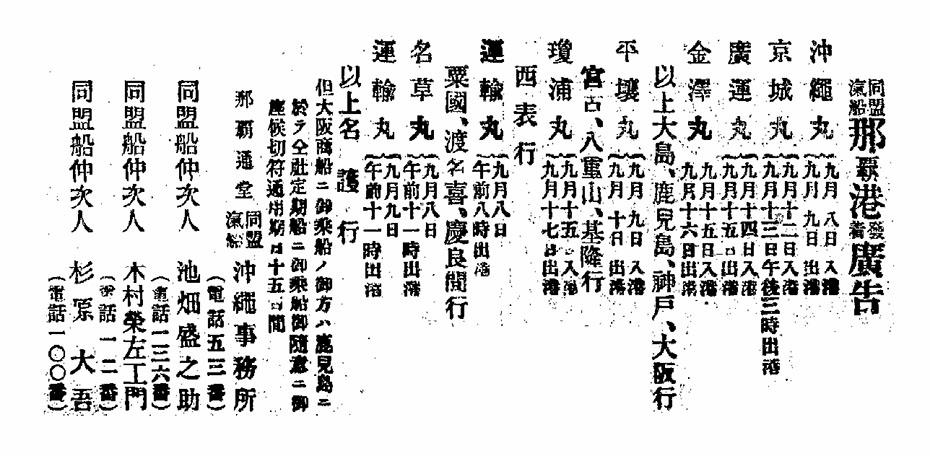 同盟汽船那覇港發着廣告
沖繩丸 九月八日入港 九月九日出港
京城丸 九月十二日入港 九月十三日午後三時出港
廣運丸 九月十四日入港 九月十五日出港
金澤丸 九月十五日入港 九月十六日出港
以上大島、鹿兒島、神戸、大阪行
平壤丸 九月九日入港 九月十日出港
宮古、八重山、基隆行
瓊浦丸 九月十五日入港 九月十七日出港
西表行
運輸丸 九月八日午前八時出港
粟國、渡名喜、慶良間行
名草丸 九月八日午前十一時出港
運輸丸 九月九日午前十一時出港
以上名護行
但大阪商船ニ御乘船ノ御方ハ鹿兒島ニ
於テ仝社定期船ニ御乘船御隨意ニ御
座候切符通用期日十五日間
那覇通堂 同盟汽船 沖繩事務所
(電話五三番)
同盟船仲次人 池畑盛之助
(電話一三六番)
同盟船仲次人 木村榮左工門
(電話一二番)
同盟船仲次人 杉原大吾
(電話一〇〇番)